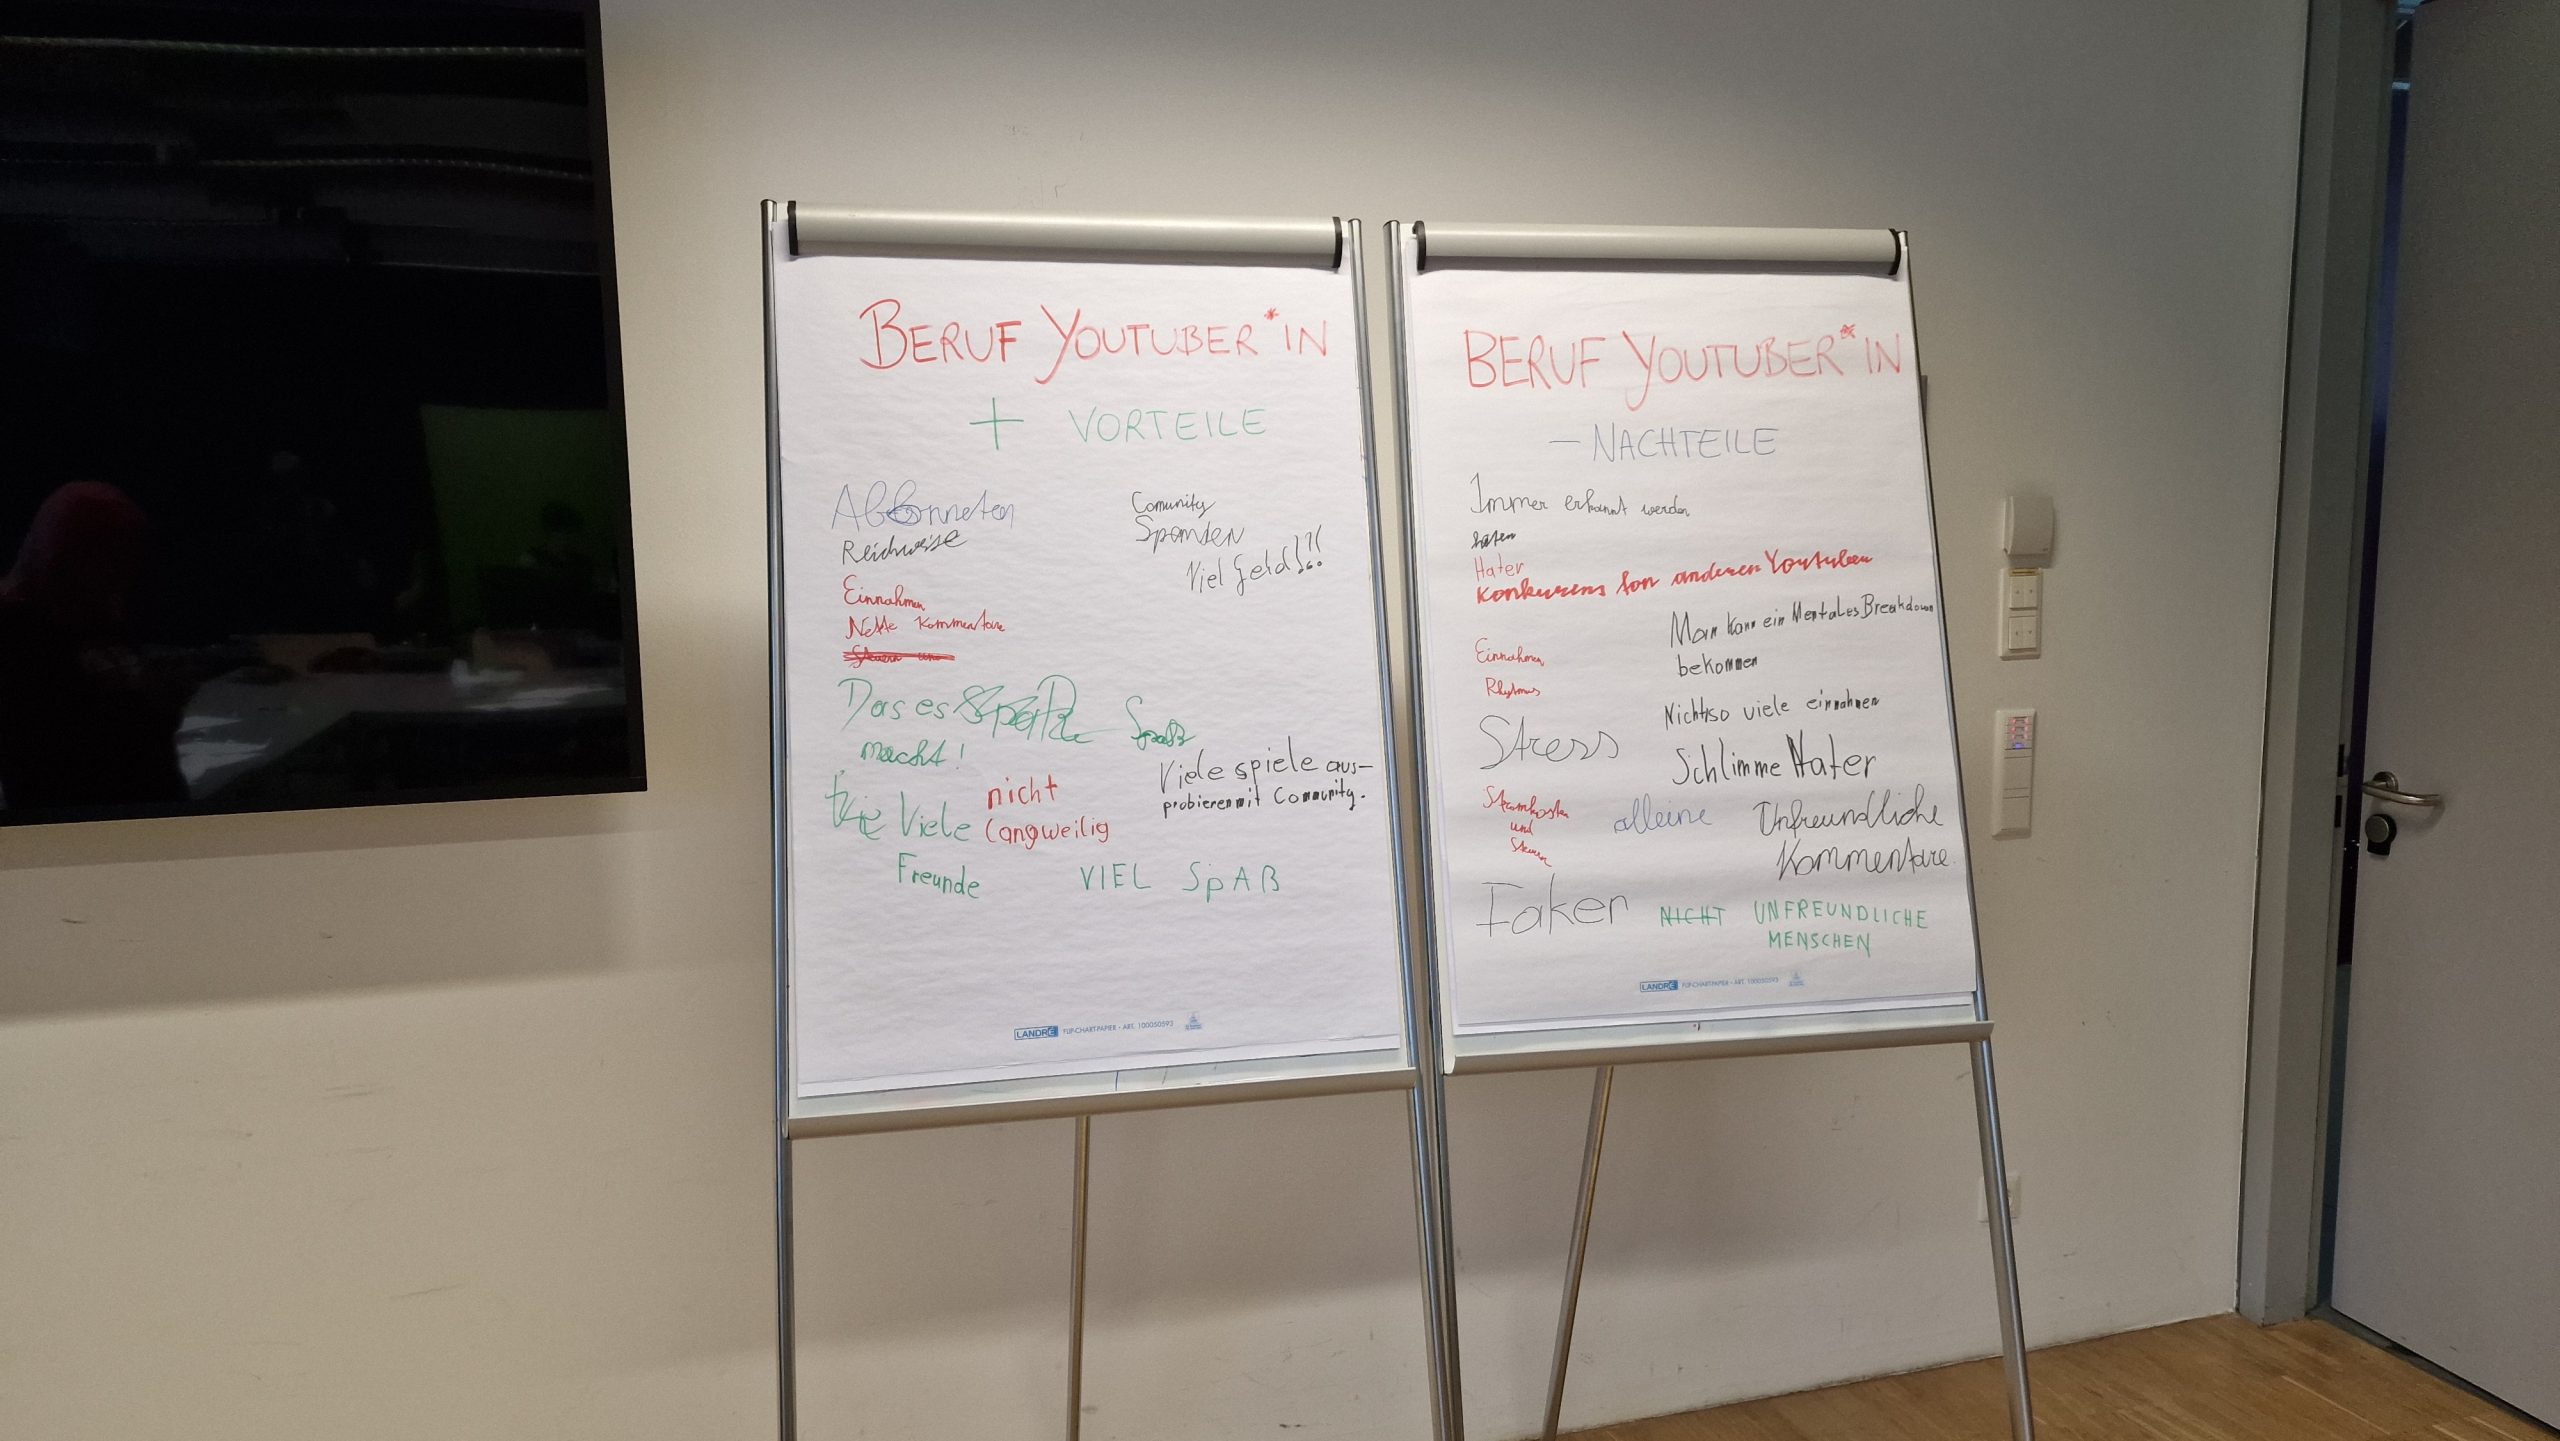 BERUF YOUTUBER*IN
+ VORTEILE
Abonneten
Reichweise
Einnahmen
Nette Kommentare
Steuern und
Das es Spaß
macht!
Viele
Freunde
nicht
langweilig
Comunity
Spenden
Viel Geld!?!
Viele spiele aus-
probieren mit Community.
VIEL SpAß
LANDRÉ FLIP-CHART-PAPIER - ART. 100050593
BERUF YOUTUBER*IN
- NACHTEILE
Immer erkannt werden
haten
Hater
Konkurens fon anderen Youtuben
Einnahmen
Rhytmus
Stress
Stromkosten
und
Steuern
Faker
Man kann ein Mentales Breakdown
bekommen
Nicht so viele einnahmen
Schlimme Hater
alleine
Unfreundliche
Kommentare.
NICHT UNFREUNDLICHE
MENSCHEN
LANDRÉ FLIP-CHART-PAPIER - ART. 100050593